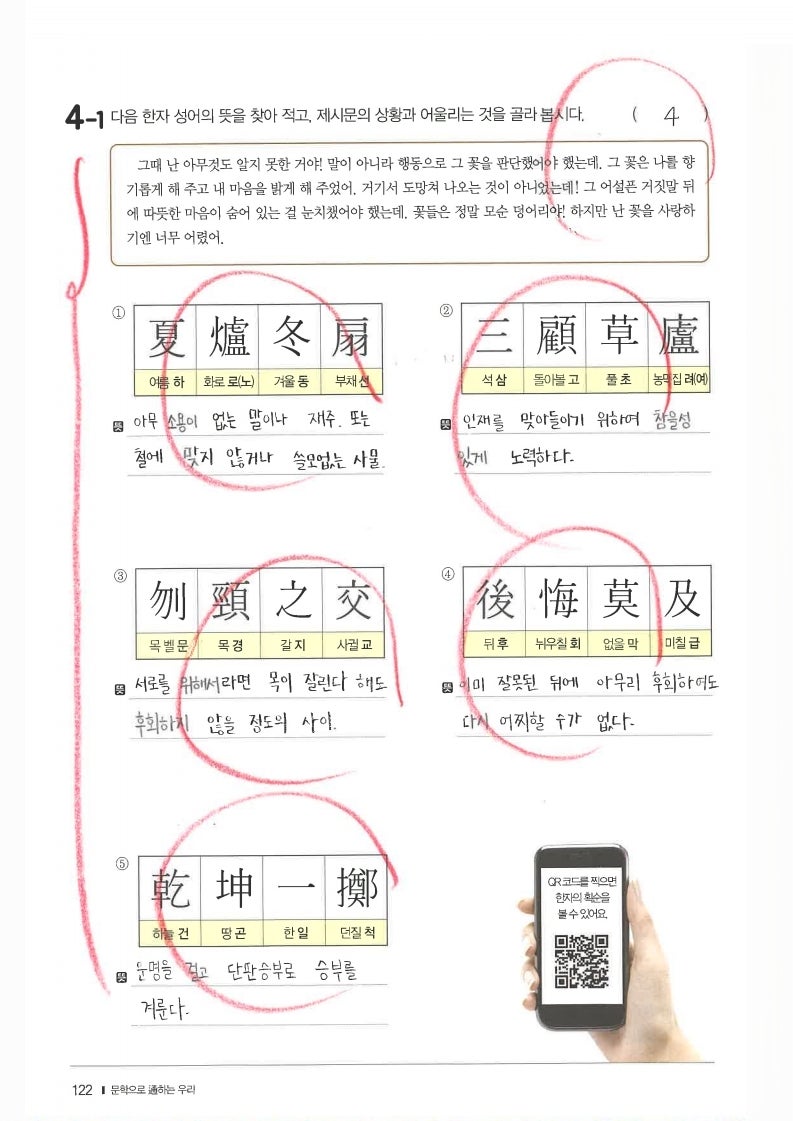 4-1 다음 한자 성어의 뜻을 찾아 적고, 제시문의 상황과 어울리는 것을 골라 봅시다. ( 4 )
그때 난 아무것도 알지 못한 거야! 말이 아니라 행동으로 그 꽃을 판단했어야 했는데. 그 꽃은 나를 향
기롭게 해 주고 내 마음을 밝게 해 주었어. 거기서 도망쳐 나오는 것이 아니었는데! 그 어설픈 거짓말 뒤
에 따뜻한 마음이 숨어 있는 걸 눈치챘어야 했는데. 꽃들은 정말 모순 덩어리야! 하지만 난 꽃을 사랑하
기엔 너무 어렸어.
①
夏 爐 冬 扇
여름 하 화로 로(노) 겨울 동 부채 선
뜻 아무 소용이 없는 말이나 재주. 또는
철에 맞지 않거나 쓸모없는 사물.
②
三 顧 草 廬
석 삼 돌아볼 고 풀 초 농막집 려(여)
뜻 인재를 맞아들이기 위하여 참을성
있게 노력하다.
③
刎 頸 之 交
목 벨 문 목 경 갈 지 사귈 교
뜻 서로를 위해서라면 목이 잘린다 해도
후회하지 않을 정도의 사이.
④
後 悔 莫 及
뒤 후 뉘우칠 회 없을 막 미칠 급
뜻 이미 잘못된 뒤에 아무리 후회하여도
다시 어찌할 수가 없다.
⑤
乾 坤 一 擲
하늘 건 땅 곤 한 일 던질 척
뜻 운명을 걸고 단판승부로 승부를
겨룬다.
QR 코드를 찍으면
한자의 획순을
볼 수 있어요.
122 문학으로 通하는 우리